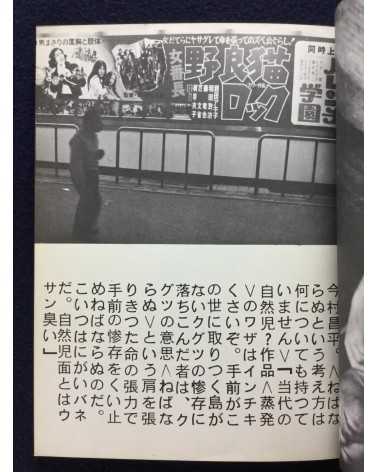 女番長
野良猫
ロック
同時上
学園
今村昌平。〈ねばな
らぬという考え方は
何についても持つて
いません〉「当代の
自然児?作品〈蒸発
〉のワザはインチキ
くさいぞ。手前がこ
の世に取りつく島が
ないクグツの惨存に
落ちこんだ者は、ク
グツの意思〈ねばな
らぬ〉という肩を張
りきつた命の張力で
手前の惨存をくい止
めねばならぬのだ。
こいつはにがいバネ
だ。自然児面とはウ
サン臭い」